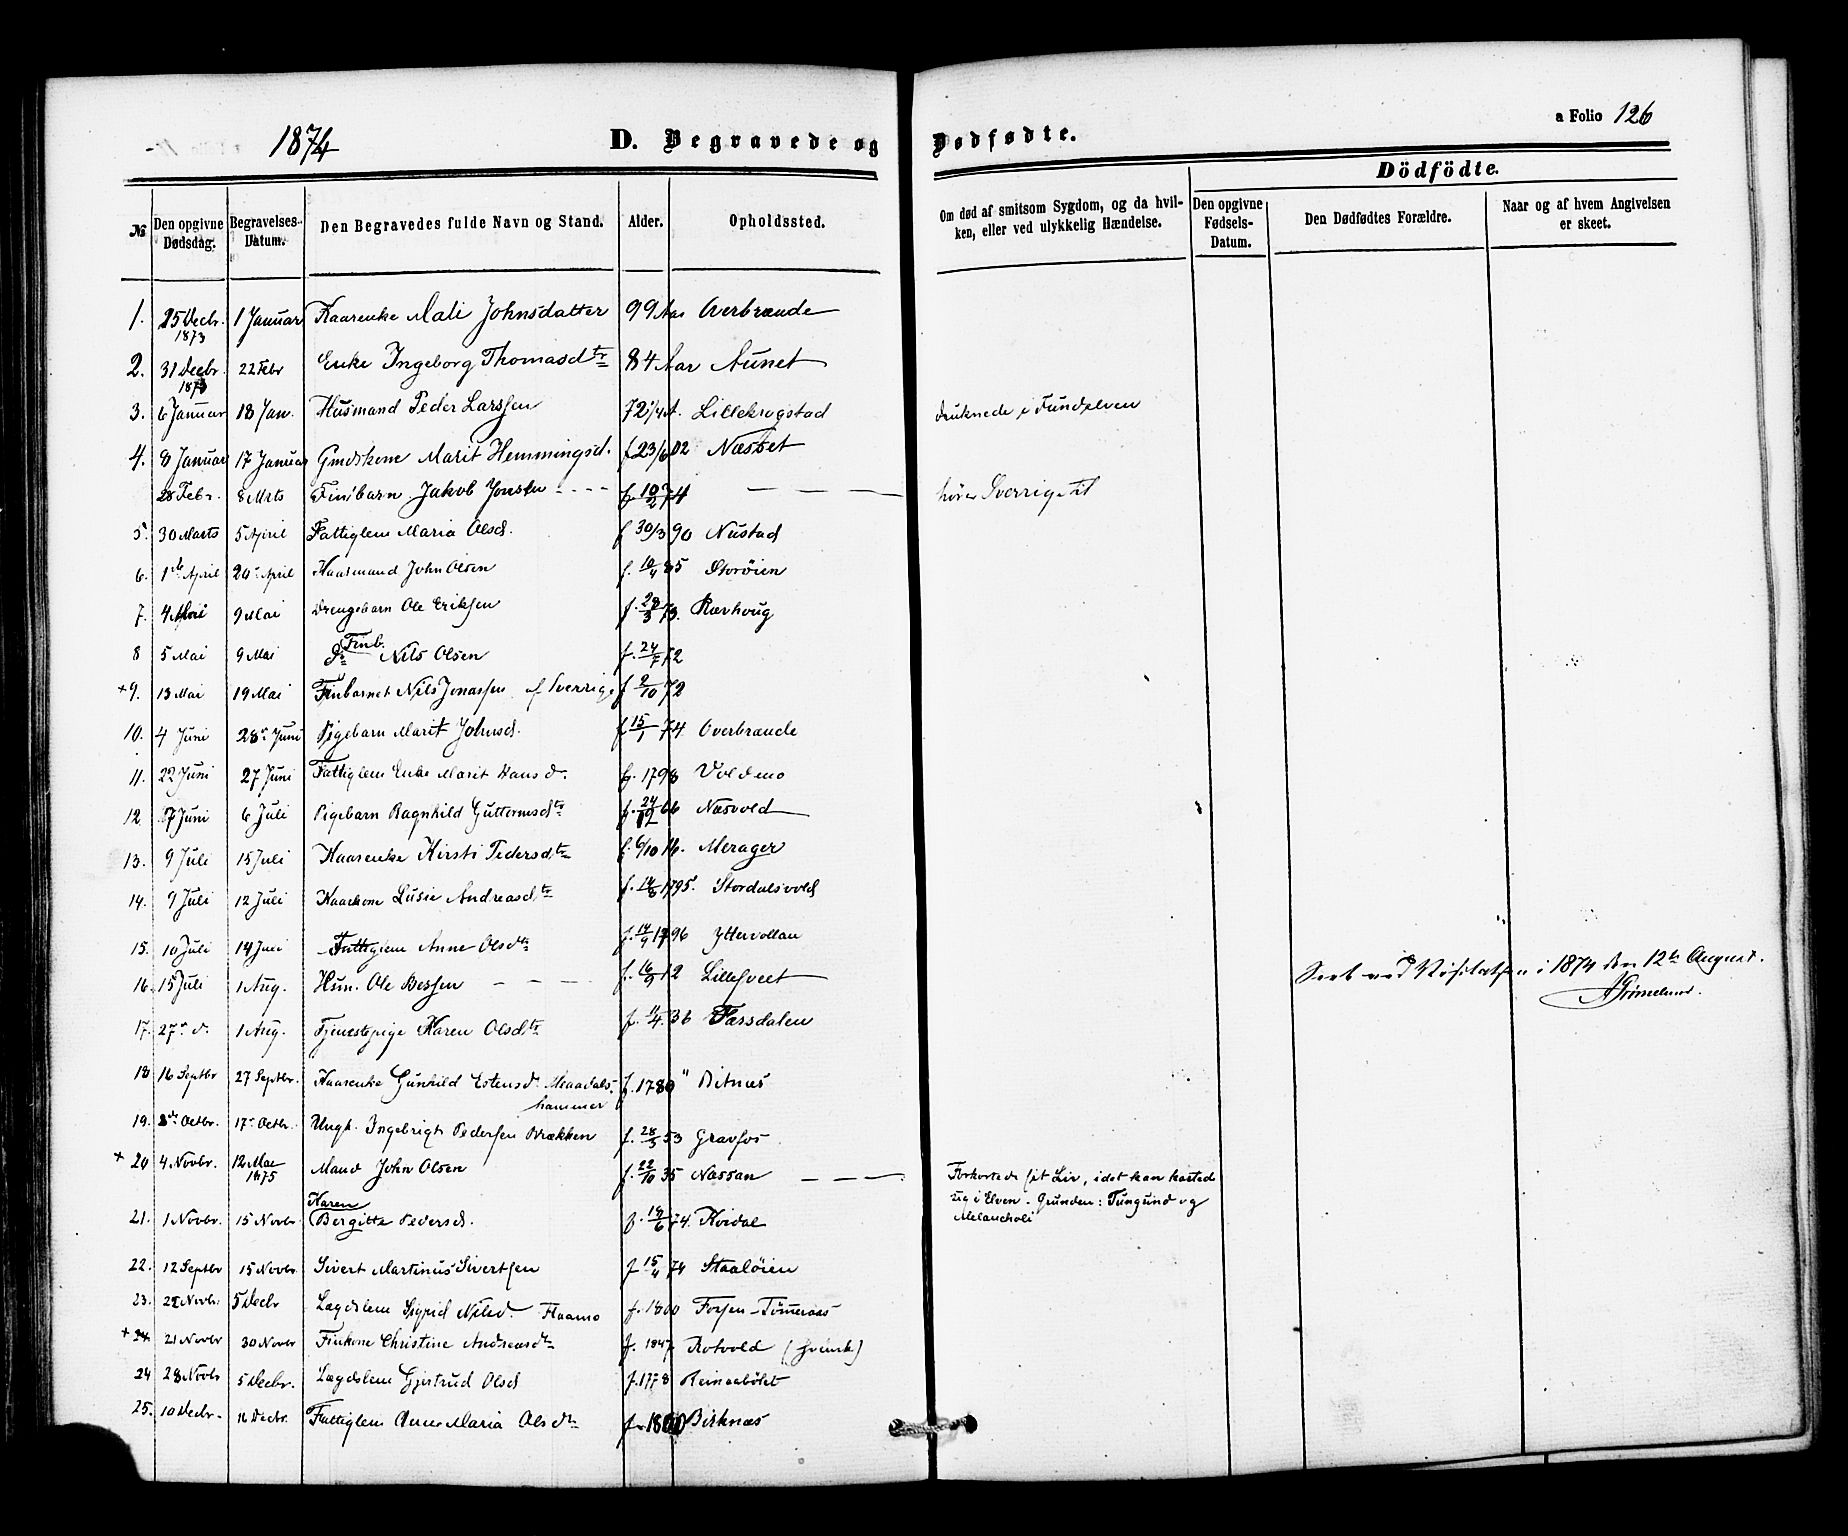 a Folio 126
1874 D. Begravede og Dødfødte.
Dödfödte.
№ Den opgivne Dødsdag. Begravelses-Datum. Den Begravedes fulde Navn og Stand. Alder. Opholdssted. Om død af smitsom Sygdom, og da hvilken, eller ved ulykkelig Hændelse. Den opgivne Fødsels-Datum. Den Dødfødtes Forældre. Naar og af hvem Angivelsen er skeet.
1. 25 Decbr. 1873 1 Januar Kaarenke Mali Johnsdatter 99 Aar Overbrænde
2. 31 Decbr. 1873 22 Febr Enke Ingeborg Thomasdtr 84 Aar Aunet
3. 6 Januar 18 Jan. Husmand Peder Larssen 72 1/4 A. Lillekrogstad druknede i Fundelven
4. 8 Januar 17 Januar Gmdskone Marit Hemmingsd. f 23/6 02 Næsset
28 Febr. 8 Mrts Finbarn Jakob Jonsen - - - f 10/2 74 — — — hører Sverrige til
5. 30 Marts 5 April Fattiglem Maria Olsd. f 30/3 90 Nustad
6. 1ste April 20 April Kaarmand John Olsen f. 10/4 85 Storöien
7. 4 Mai 9 Mai Drengebarn Ole Eriksen f. 28/3 73. Rævhoug
8 5 Mai 9 Mai Do Finb. Nils Olsen f. 24/7 72
+9. 13 Mai 19 Mai Finbarnet Nils Jonassen af Sverrige f 2/10 72
10. 4 Juni 28de Juni Pigebarn Marit Johnsd. f 15/1 74. Overbrænde
11. 22 Juni 27 Juni Fattiglem Enke Marit Hansd. f. 1798 Voldmo
12 7 Juni 6 Juli Pigebarn Ragnhild Guttormsdtr f. 24/12 66 Næsvold
13. 9 Juli 15 Juli Kaarenke Kirsti Pedersdtr f. 6/10 16. Merager
14. 9 Juli 12 Juli Kaarkone Lusie Andreasdtr f. 14/8 1795. Stordalsvold
15. 10 Juli 14 Juli Fattiglem Anne Olsdtr f. 14/9 1796 Yttervollan
16. 15 Juli 1 Aug. Hun. Ole Bessen - - - f. 16/9 12 Lillesveet
1874 den 12te August.
17. 27de d. 1 Aug. Tjenestepige Karen Olsdtr f. 11/4 36 Færsdalen
18 16 Septbr 27 Septbr. Kaarenke Gunhild Estensd. Meaadals-
hammer f. 1780 " Bitnæs
19. 8de Octbr. 17de Octbr. Ungk. Ingebrigt Pedersen Brækken f. 28/3 53 Gravfos
+ 20 4 Novbr. 12 Mai 1875 Mand John Olsen f. 22/10 35 Næssan — — — Forkortede sit Liv, idet han kasted
sig i Elven. Grunden: Tungsind og
Melancholi
21. 1 Novbr. 15 Novbr Karen Bergitte Pedersd. f. 14/6 74. Kvidal
22. 12 Septbr 15 Novbr. Sivert Martinus Sivertsen f 15/4 74 Staalöien
23. 22 Novbr. 5 Decbr Lægdslem Sigrid Nilsd. Flaamo f. 1800 Fossen-Tömeraas
+ 24 21 Novbr 30 Novbr Finkone Christine Andreasdtr f. 1847 Rotvold (svensk)
24 28 Novbr 5 Decbr. Lægdslem Gjertrud Olsd f. 1778 Reinaabölet
25. 10 Decbr. 16 Decbr. Fattiglem Ane Maria Olsdtr f. 1800 Birknæs